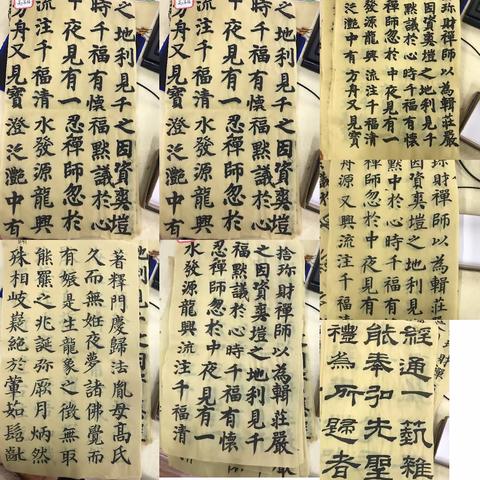 之地利見千之因資爽塏
時千福有懷福默議於心
中夜見有一忍禪師忽於
流注千福清水發源龍興
方舟又見寶澄泛灔中有
之地利見千之因資爽塏
時千福有懷福默議於心
中夜見有一忍禪師忽於
流注千福清水發源龍興
方舟又見寶澄泛灔中有
弥財禪師以為輯莊嚴
因資爽塏之地利見千
默議於心時千福有懷
禪師忽於中夜見有一
發源龍興流注千福清
中有方舟又見寶
弥財禪師以為輯莊
因資爽塏之地利見
默議於心時千福有
禪師忽於中夜見有
源龍興流注千福清
方舟又見
著釋門慶歸法胤母高氏
久而無姙夜夢諸佛覺而
有娠是生龍象之徵無取
熊羆之兆誕弥厥月炳然
殊相岐嶷絕於葷茹髫齔
捨弥財禪師以為輯莊嚴
之因資爽塏之地利見千
福默議於心時千福有懷
忍禪師忽於中夜見有一
水發源龍興流注千福清
經通一藝雜
能奉弘先聖
禮為所歸者